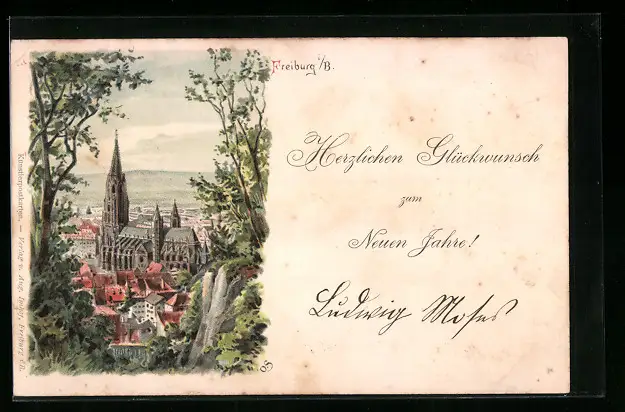 Freiburg i/B.
Herzlichen Glückwunsch
zum
Neuen Jahre!
Ludwig Moses
Künstlerpostkarten. — Verlag v. Aug. Freiburg i/B.
O.S.